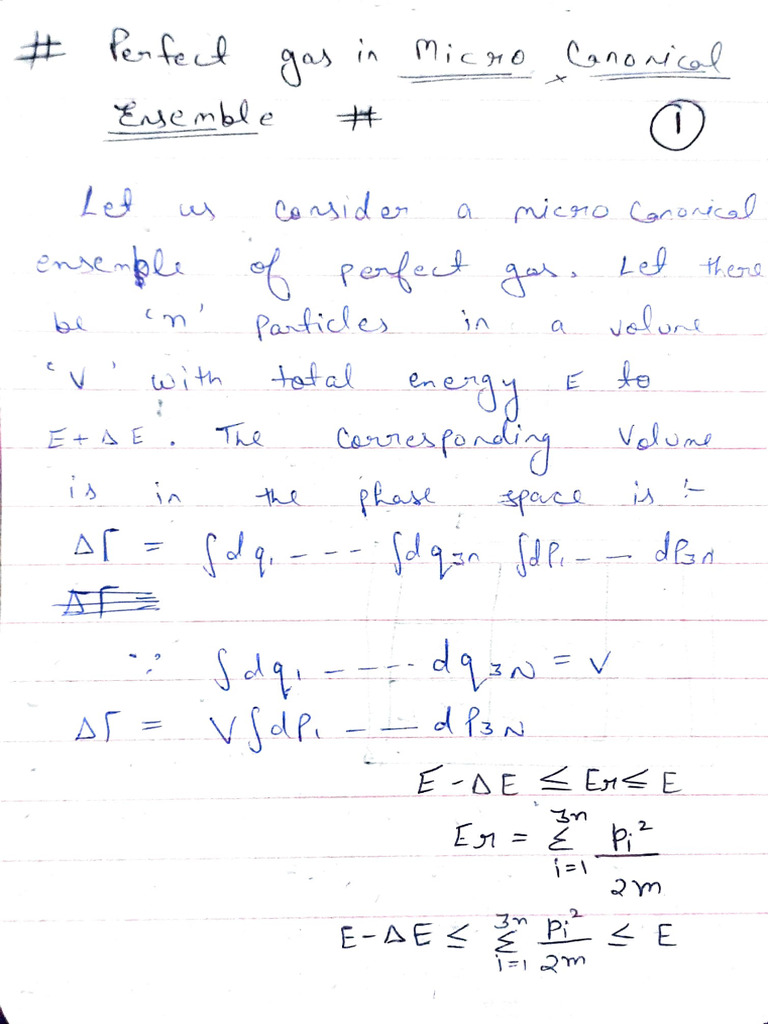 # Perfect gas in Micro Canonical
Ensemble #
1
Let us consider a micro Canonical
ensemble of perfect gas. Let there
be 'n' Particles in a volume
'V' with total energy E to
E + Δ E . The Corresponding Volume
is in the phase space is :-
ΔΓ = ∫dq₁ - - - - ∫dq₃n ∫dP₁ - - dP₃n
∵ ∫dq₁ - - - - - dq₃N = V
ΔΓ = V∫dP₁ - - - d P₃N
E - ΔE ≤ Er ≤ E
Er = Σ_{i=1}^{3n} Pi² / 2m
E - ΔE ≤ Σ_{i=1}^{3n} Pi² / 2m ≤ E